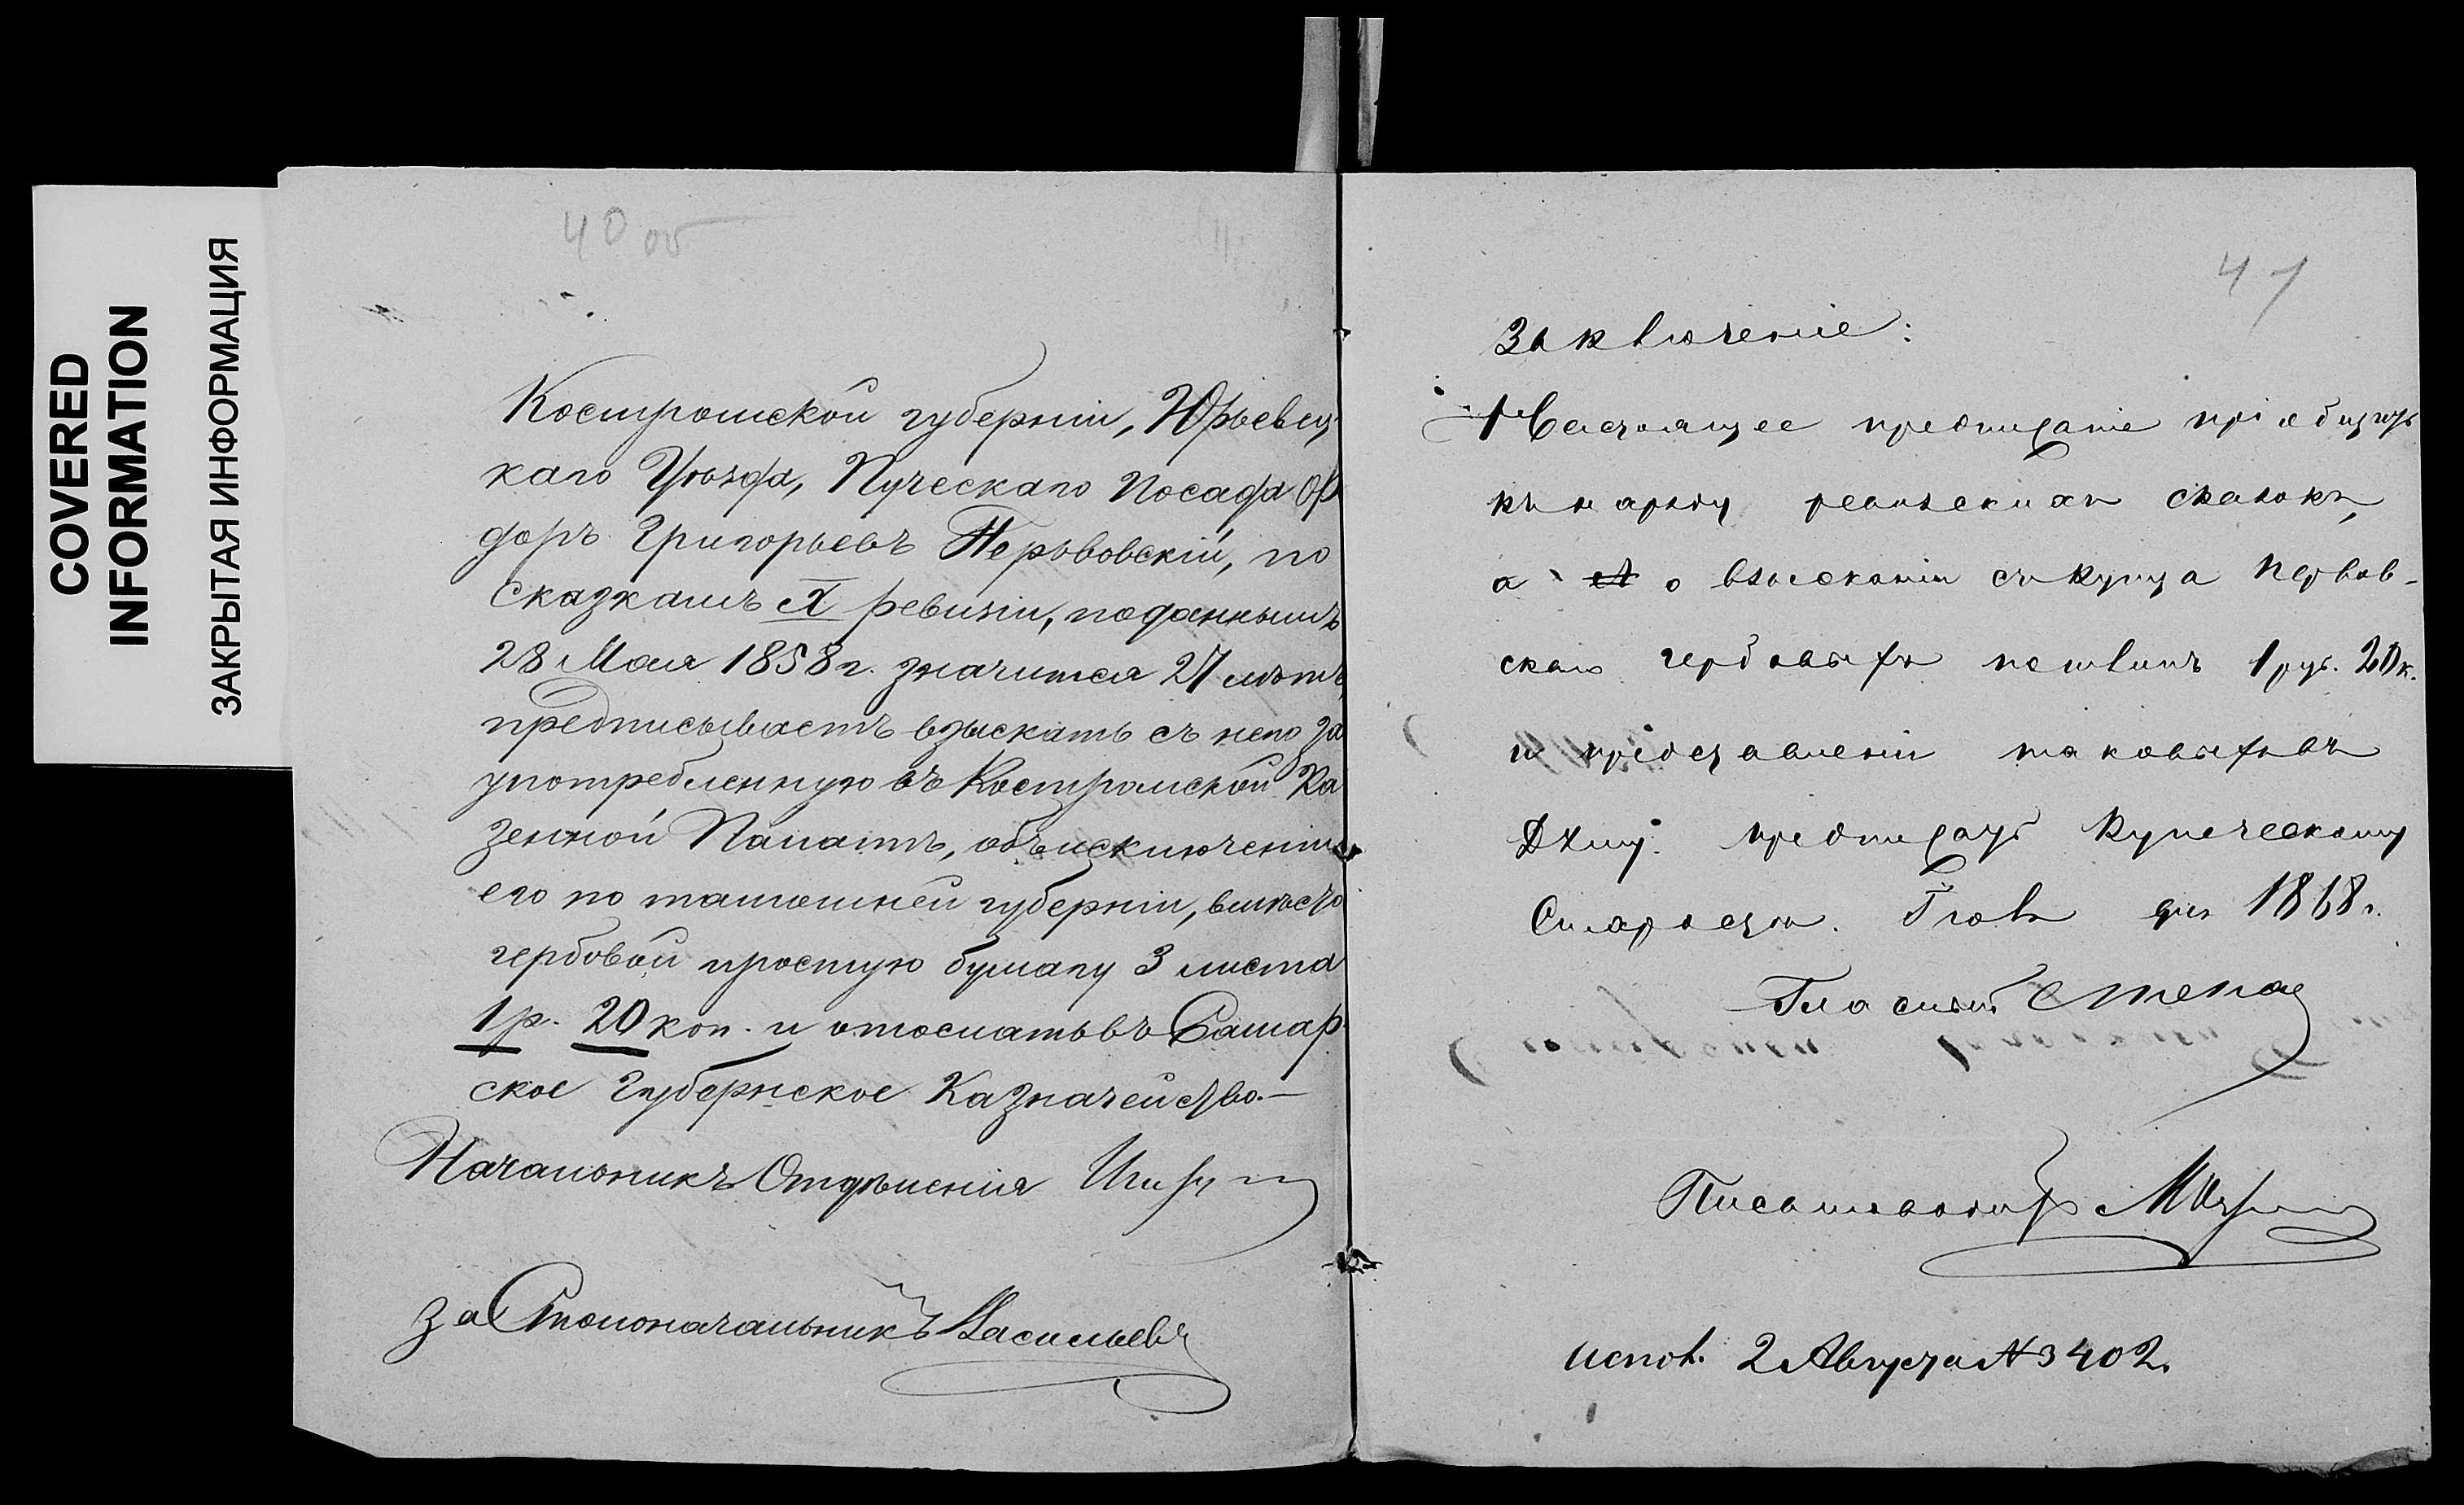 COVERED
INFORMATION
ЗАКРЫТАЯ ИНФОРМАЦИЯ
40 об
Костромской губерніи, Юрьевец-
каго Уѣзда, Пуческаго Посада Ѳе
доръ Григорьевъ Перьвовскій, по
сказкамъ X ревизіи, поданнымъ
28 Мая 1858 г. значится 27 лѣтъ,
предписываетъ взыскать съ него за
употребленную въ Костромской Ка
зенной Палатѣ, объ исключеніи
его по тамошней губерніи, вмѣсто
гербовой простую бумагу 3 листа
1 р. 20 коп. и отослать въ Самар-
ское Губернское Казначейство.—
Начальникъ Отдѣленія
За Столоначальникъ Васильевъ
41
Заключеніе:
Настоящее предписаніе пріобщить
къ наряду ревизскихъ сказокъ,
а о взысканіи съ купца Первов-
скаго гербовыхъ пошлинъ 1 руб. 20 к.
и представленіи таковыхъ въ
Думу предписать Купеческому
Старостѣ. Іюля дня 1868 г.
Гласный
Письмоводитель
испол. 2 Августа № 3402.